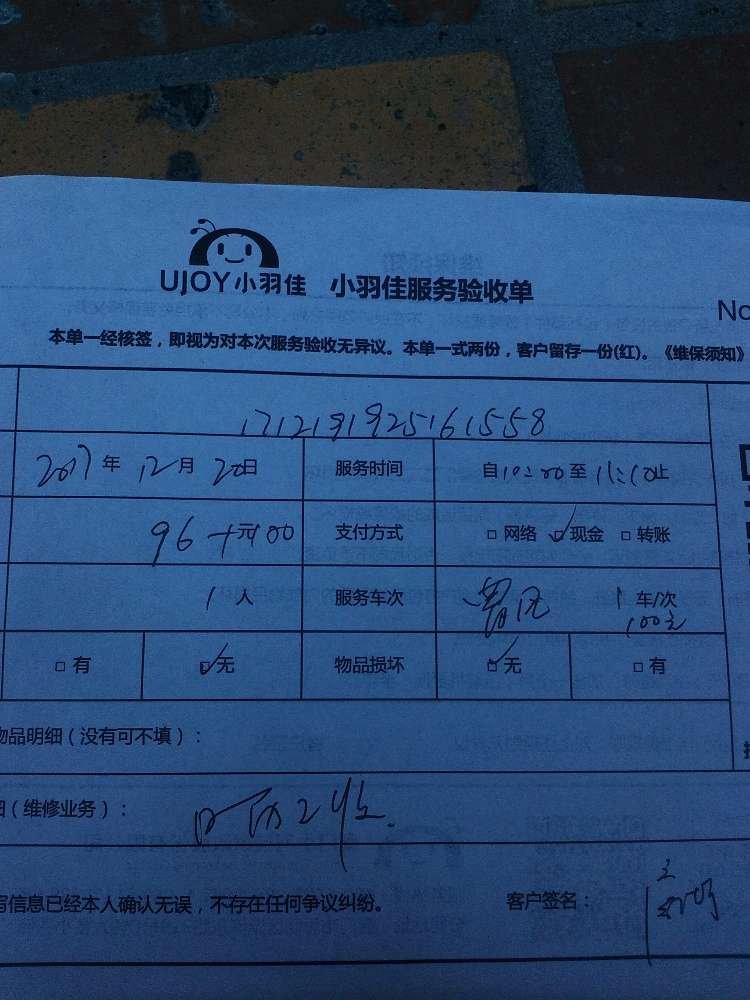 UJOY小羽佳 小羽佳服务验收单
No
本单一经核签，即视为对本次服务验收无异议。本单一式两份，客户留存一份(红)。《维保须知》
1712191925161558
2017年 12月 20日 服务时间 自10:00至11:10止
96+元100 支付方式 □ 网络 ☑现金 □ 转账
1人 服务车次 1 车/次
100元
□ 有 ☑无 物品损坏 ☑无 □ 有
物品明细（没有可不填）：
（维修业务）：
写信息已经本人确认无误，不存在任何争议纠纷。 客户签名：